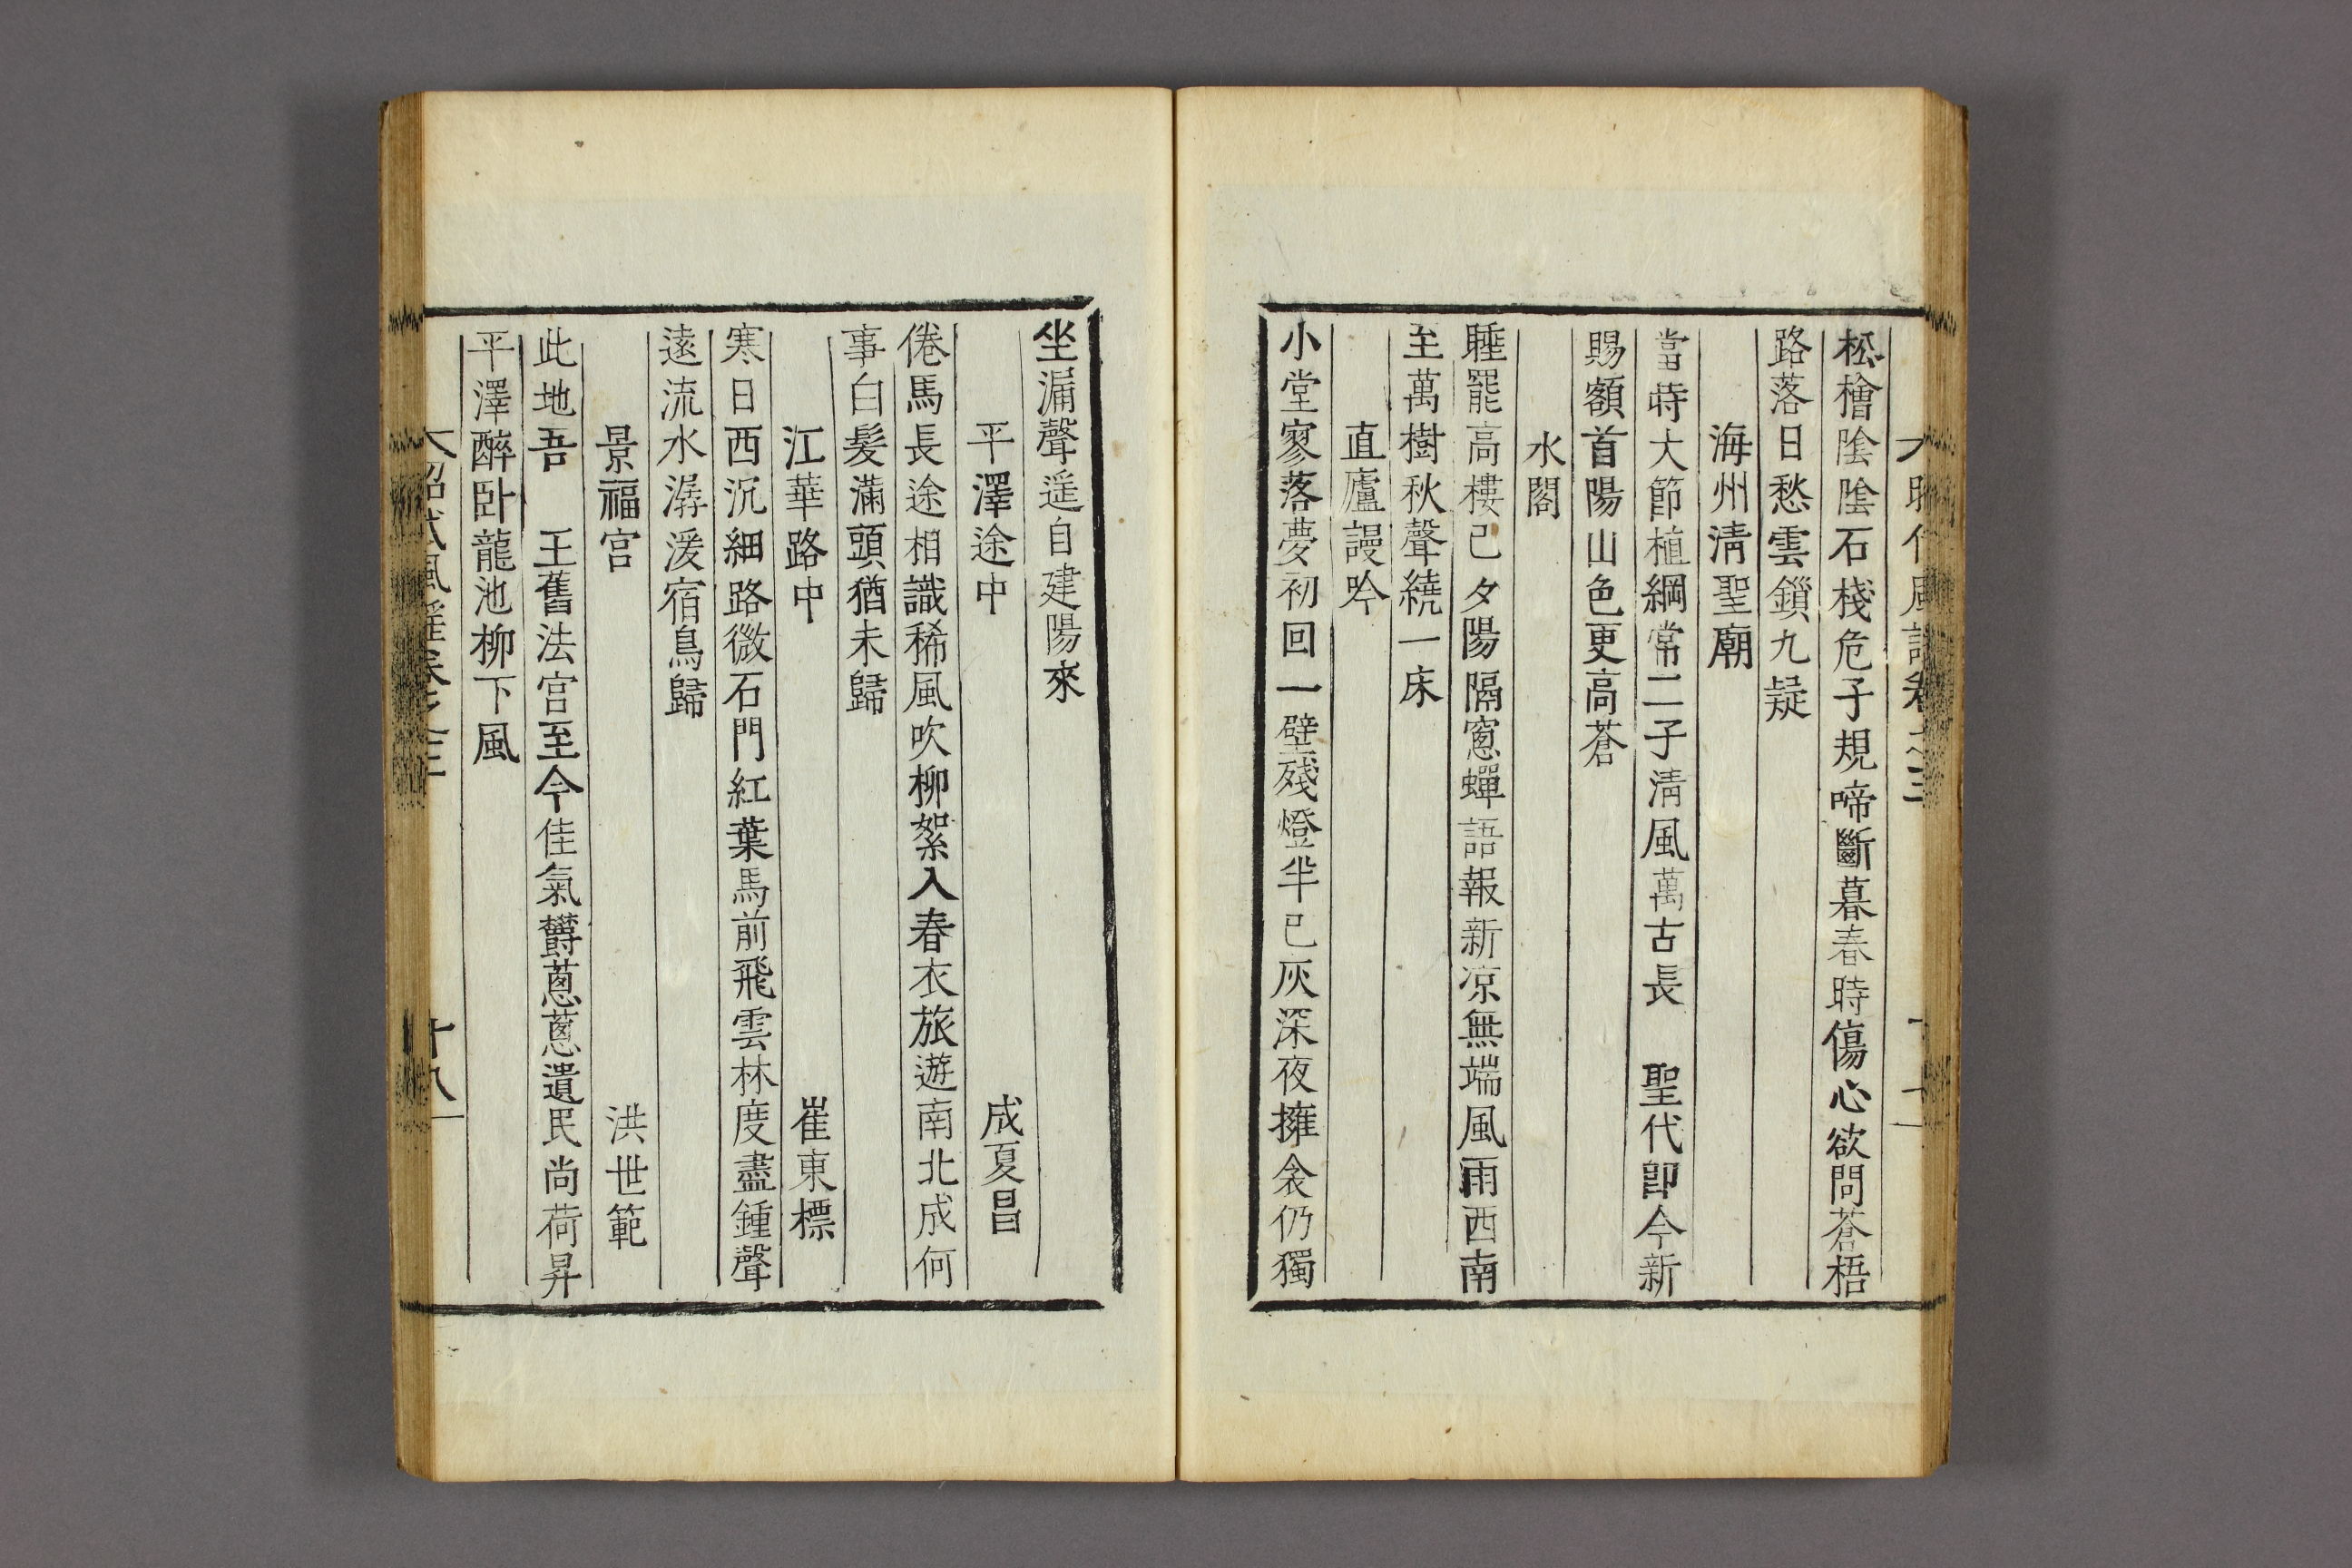 松檜陰陰石棧危子規啼斷暮春時傷心欲問蒼梧
路落日愁雲鎻九疑
海州淸聖廟
當時大節植綱常二子淸風萬古長　聖代卽今新
賜額首陽山色更高蒼
水閣
睡罷高樓已夕陽隔窻蟬語報新凉無端風雨西南
至萬樹秋聲繞一床
直廬謾吟
小堂寥落夢初回一壁殘燈半已灰深夜擁衾仍獨
坐漏聲遥自建陽來
平澤途中　成夏昌
倦馬長途相識稀風吹柳絮入春衣旅遊南北成何
事白髮滿頭猶未歸
江華路中　崔東標
寒日西沉細路微石門紅葉馬前飛雲林度盡鍾聲
遠流水潺湲宿鳥歸
景福宮　洪世範
此地吾　王舊法宮至今佳氣欝蔥蔥遺民尚荷昇
平澤醉卧龍池柳下風
昭代風謠卷之三　十八